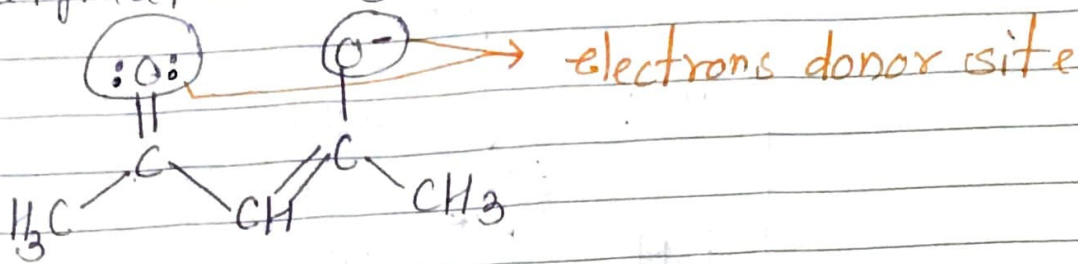 :O: O⁻ → electrons donor site
C C
H₃C CH CH3